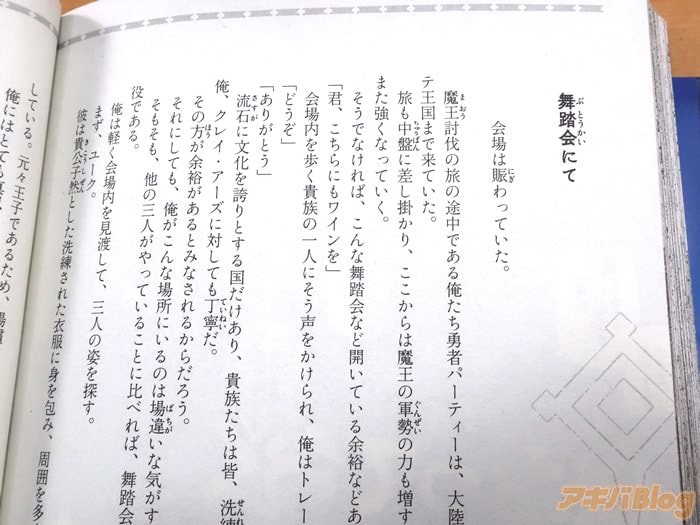 舞踏会にて
会場は賑わっていた。
魔王討伐の旅の途中である俺たち勇者パーティーは、大陸
テ王国まで来ていた。
旅も中盤に差し掛かり、ここからは魔王の軍勢の力も増す
また強くなっていく。
そうでなければ、こんな舞踏会など開いている余裕などあ
「君、こちらにもワインを」
会場内を歩く貴族の一人にそう声をかけられ、俺はトレー
「どうぞ」
「ありがとう」
流石に文化を誇りとする国だけあり、貴族たちは皆、洗練
俺、クレイ・アーズに対しても丁寧だ。
その方が余裕があるとみなされるからだろう。
それにしても、俺がこんな場所にいるのは場違いな気がす
そもそも、他の三人がやっていることに比べれば、舞踏会
役である。
俺は軽く会場内を見渡して、三人の姿を探す。
まず、ユーク。
彼は貴公子然とした洗練された衣服に身を包み、周囲を多
している。元々王子であるため、場慣
俺にはとても真
アキバBlog